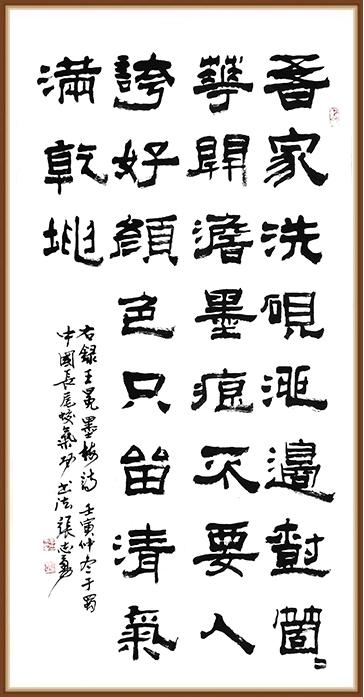 吾家洗硯池邊樹箇〻
華開澹墨痕不要人
誇好顏色只留清氣
滿乾坤
右錄王冕墨梅詩 壬寅仲冬于蜀
中國長尾蛟氣功书法張志